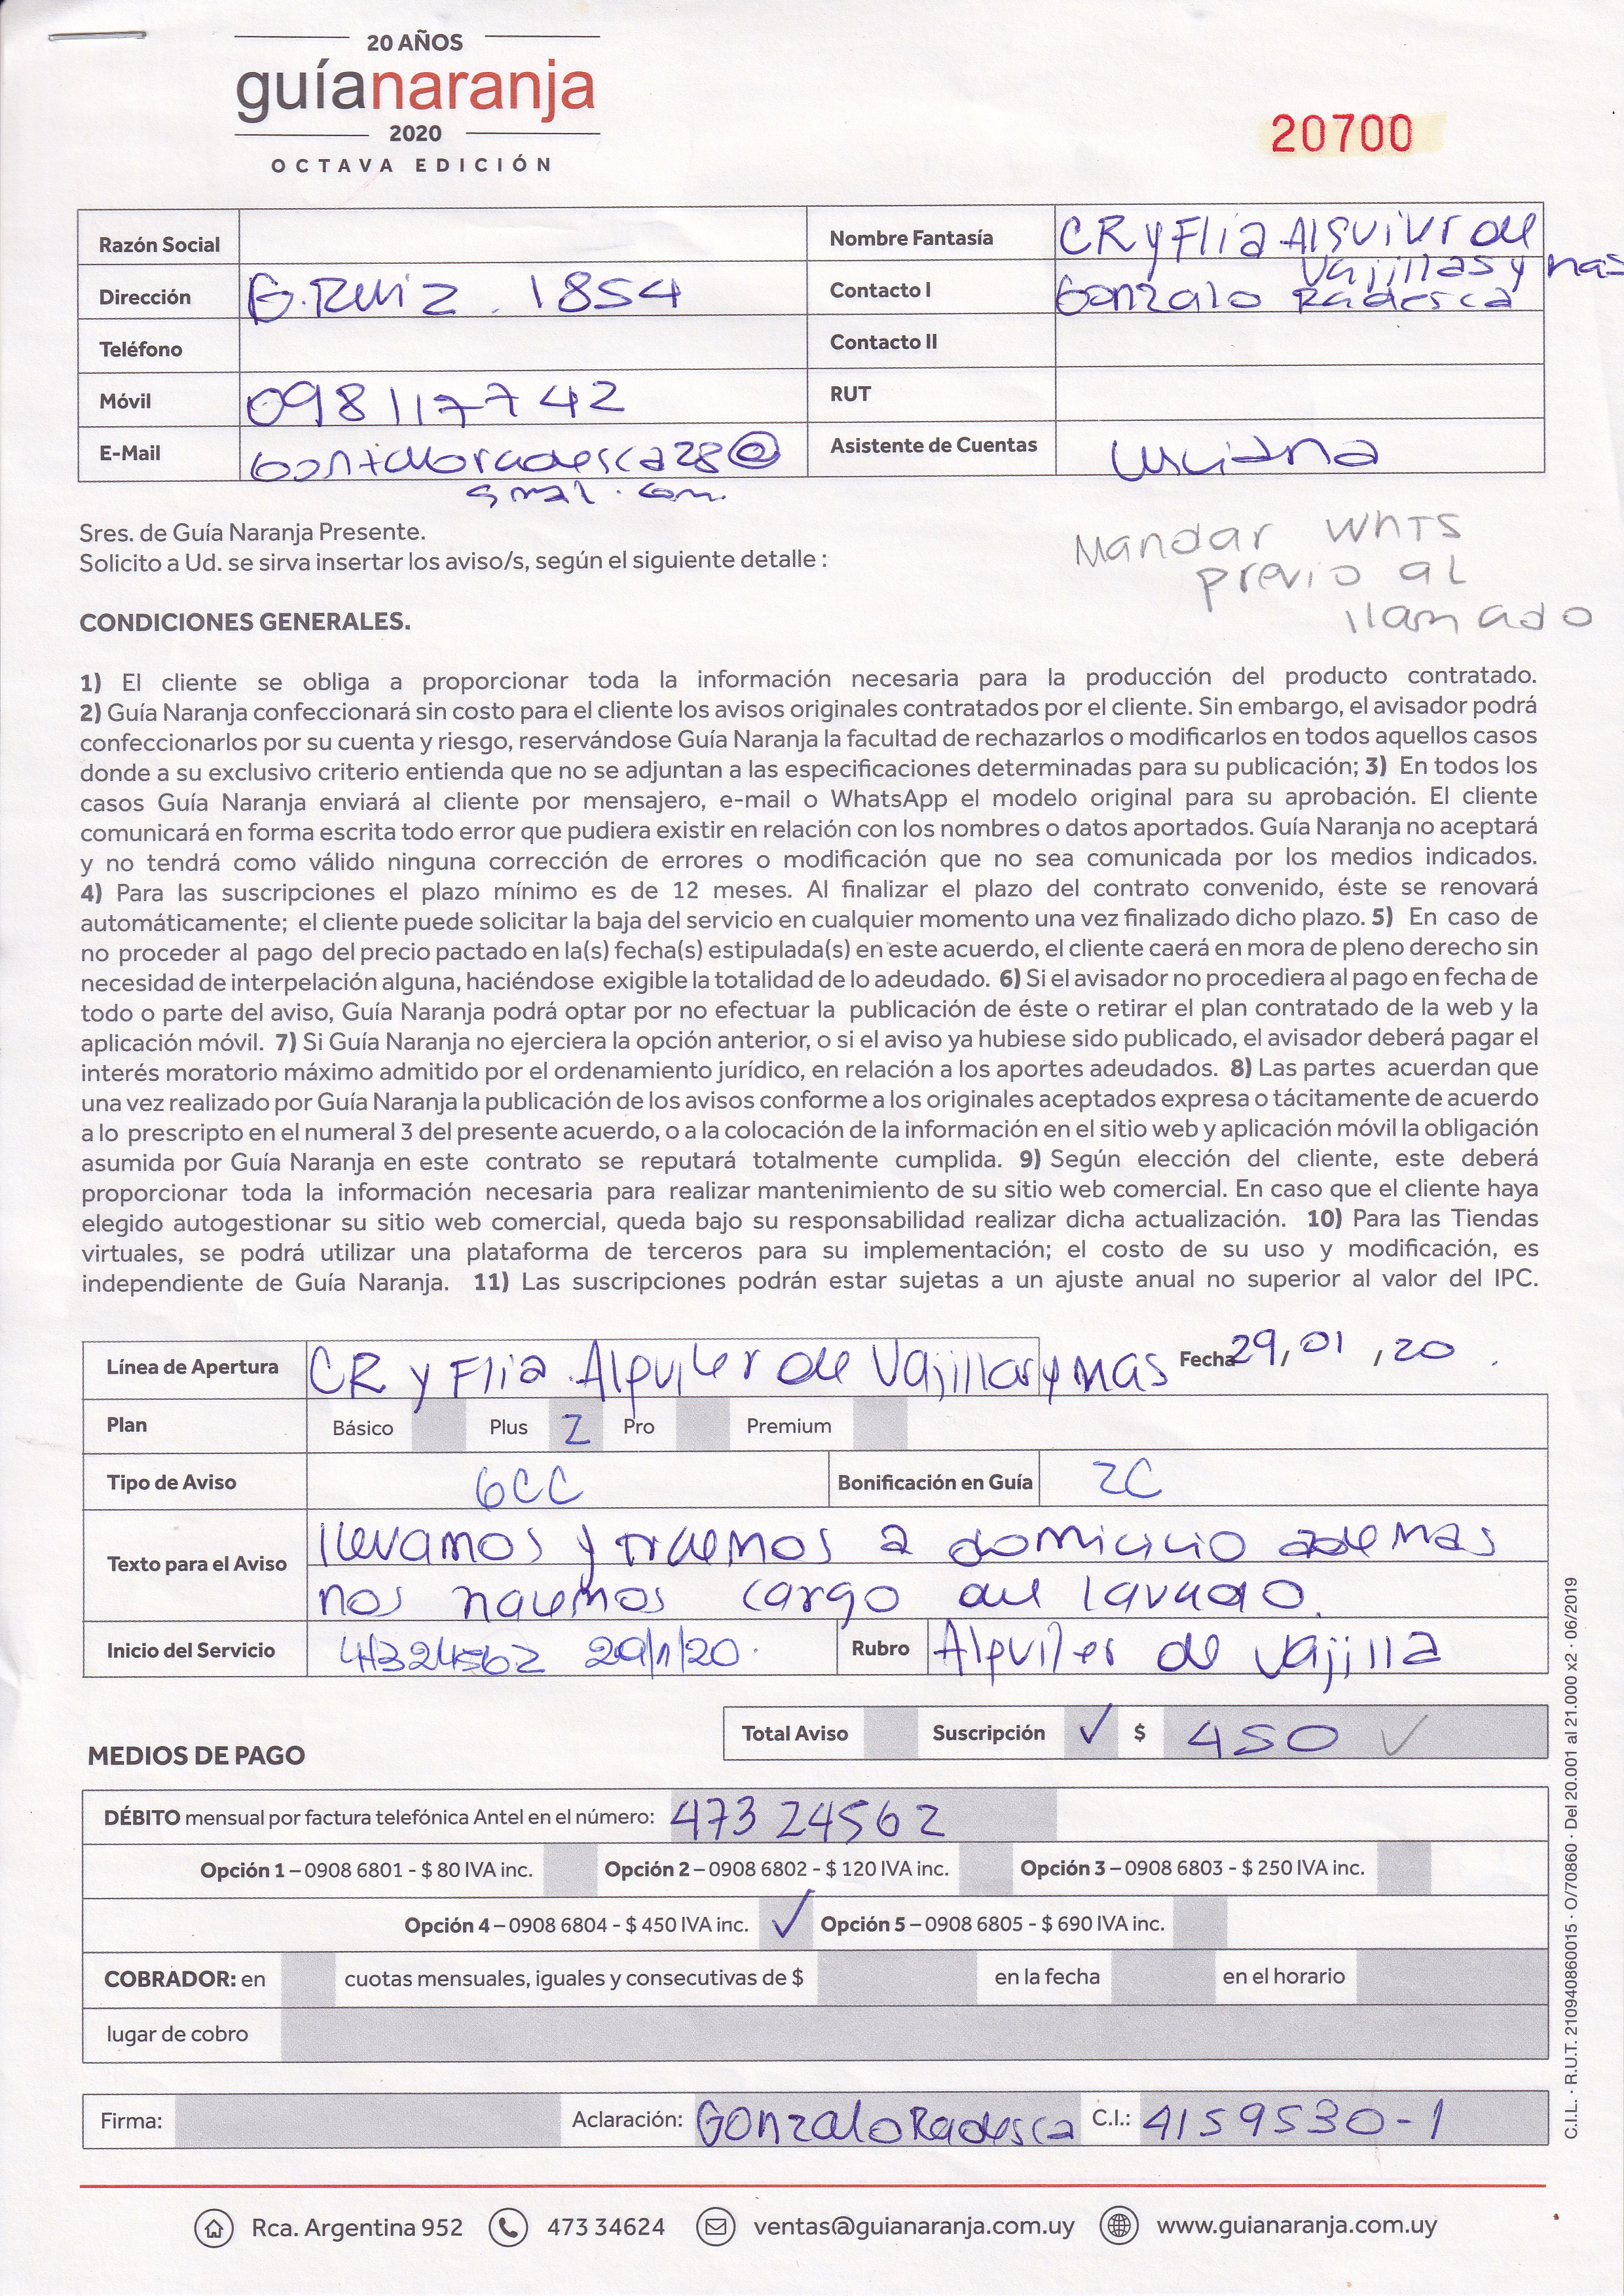 20 AÑOS
guíanaranja
2020
OCTAVA EDICIÓN
20700
Razón Social
Nombre Fantasía CR y Flia Alquiler de
Vajillas y mas
Dirección G. Ruiz. 1854
Contacto I Gonzalo Radesca
Teléfono
Contacto II
Móvil 098117742
RUT
E-Mail Gonzaloradesca28@
gmail.com.
Asistente de Cuentas Luciana
Sres. de Guía Naranja Presente.
Solicito a Ud. se sirva insertar los aviso/s, según el siguiente detalle :
Mandar WhTS
previo al
llamado
CONDICIONES GENERALES.
1) El cliente se obliga a proporcionar toda la información necesaria para la producción del producto contratado.
2) Guía Naranja confeccionará sin costo para el cliente los avisos originales contratados por el cliente. Sin embargo, el avisador podrá
confeccionarlos por su cuenta y riesgo, reservándose Guía Naranja la facultad de rechazarlos o modificarlos en todos aquellos casos
donde a su exclusivo criterio entienda que no se adjuntan a las especificaciones determinadas para su publicación; 3) En todos los
casos Guía Naranja enviará al cliente por mensajero, e-mail o WhatsApp el modelo original para su aprobación. El cliente
comunicará en forma escrita todo error que pudiera existir en relación con los nombres o datos aportados. Guía Naranja no aceptará
y no tendrá como válido ninguna corrección de errores o modificación que no sea comunicada por los medios indicados.
4) Para las suscripciones el plazo mínimo es de 12 meses. Al finalizar el plazo del contrato convenido, éste se renovará
automáticamente; el cliente puede solicitar la baja del servicio en cualquier momento una vez finalizado dicho plazo. 5) En caso de
no proceder al pago del precio pactado en la(s) fecha(s) estipulada(s) en este acuerdo, el cliente caerá en mora de pleno derecho sin
necesidad de interpelación alguna, haciéndose exigible la totalidad de lo adeudado. 6) Si el avisador no procediera al pago en fecha de
todo o parte del aviso, Guía Naranja podrá optar por no efectuar la publicación de éste o retirar el plan contratado de la web y la
aplicación móvil. 7) Si Guía Naranja no ejerciera la opción anterior, o si el aviso ya hubiese sido publicado, el avisador deberá pagar el
interés moratorio máximo admitido por el ordenamiento jurídico, en relación a los aportes adeudados. 8) Las partes acuerdan que
una vez realizado por Guía Naranja la publicación de los avisos conforme a los originales aceptados expresa o tácitamente de acuerdo
a lo prescripto en el numeral 3 del presente acuerdo, o a la colocación de la información en el sitio web y aplicación móvil la obligación
asumida por Guía Naranja en este contrato se reputará totalmente cumplida. 9) Según elección del cliente, este deberá
proporcionar toda la información necesaria para realizar mantenimiento de su sitio web comercial. En caso que el cliente haya
elegido autogestionar su sitio web comercial, queda bajo su responsabilidad realizar dicha actualización. 10) Para las Tiendas
virtuales, se podrá utilizar una plataforma de terceros para su implementación; el costo de su uso y modificación, es
independiente de Guía Naranja. 11) Las suscripciones podrán estar sujetas a un ajuste anual no superior al valor del IPC.
Línea de Apertura CR y Flia. Alquiler de Vajillas y mas Fecha 29, / 01 , / 20 .
Plan Básico Plus 2 Pro Premium
Tipo de Aviso 6CC Bonificación en Guía 2C
Texto para el Aviso llevamos y traemos a domicilio ademas
nos hacemos cargo del lavado.
Inicio del Servicio 47324562 29/1/20. Rubro Alquiler de vajilla
Total Aviso Suscripción ✓ $ 450 ✓
MEDIOS DE PAGO
DÉBITO mensual por factura telefónica Antel en el número: 473 24562
Opción 1 – 0908 6801 - $ 80 IVA inc. Opción 2 – 0908 6802 - $ 120 IVA inc. Opción 3 – 0908 6803 - $ 250 IVA inc.
Opción 4 – 0908 6804 - $ 450 IVA inc. ✓ Opción 5 – 0908 6805 - $ 690 IVA inc.
COBRADOR: en cuotas mensuales, iguales y consecutivas de $ en la fecha en el horario
lugar de cobro
Firma: Aclaración: Gonzalo Radesca C.I.: 4159530-1
C.I.L. · R.U.T. 210940860015 · O/70860 · Del 20.001 al 21.000 x2 · 06/2019
Rca. Argentina 952 473 34624 ventas@guianaranja.com.uy www.guianaranja.com.uy